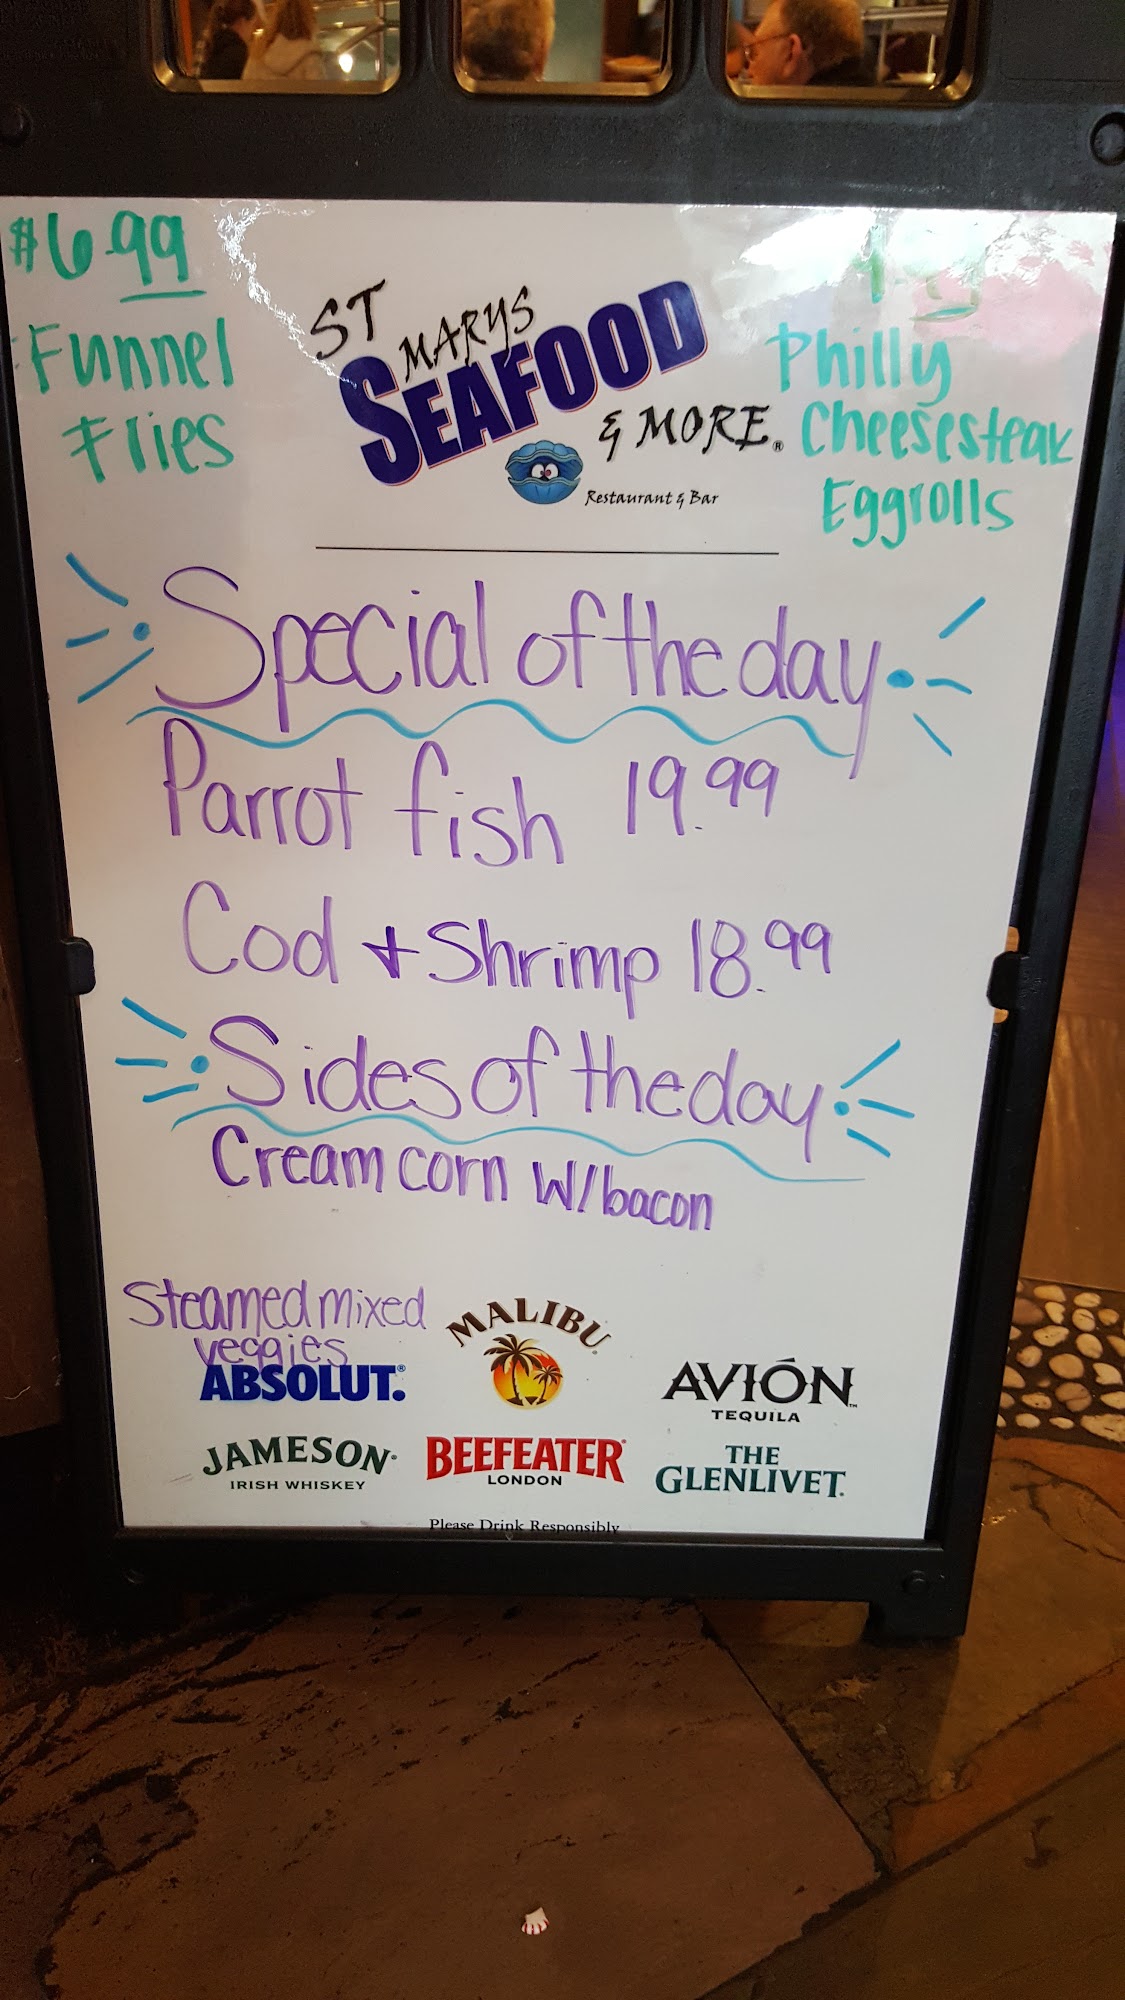 $6.99
Funnel
Fries
ST
MARYS
SEAFOOD
& MORE®
Restaurant & Bar
Philly
Cheesesteak
Eggrolls
Special of the day
Parrot fish 19.99
Cod + Shrimp 18.99
Sides of the day
Cream corn W/bacon
Steamed mixed
veggies
ABSOLUT.®
MALIBU®
AVIÓN™
TEQUILA
JAMESON®
IRISH WHISKEY
BEEFEATER®
LONDON
THE
GLENLIVET®
Please Drink Responsibly